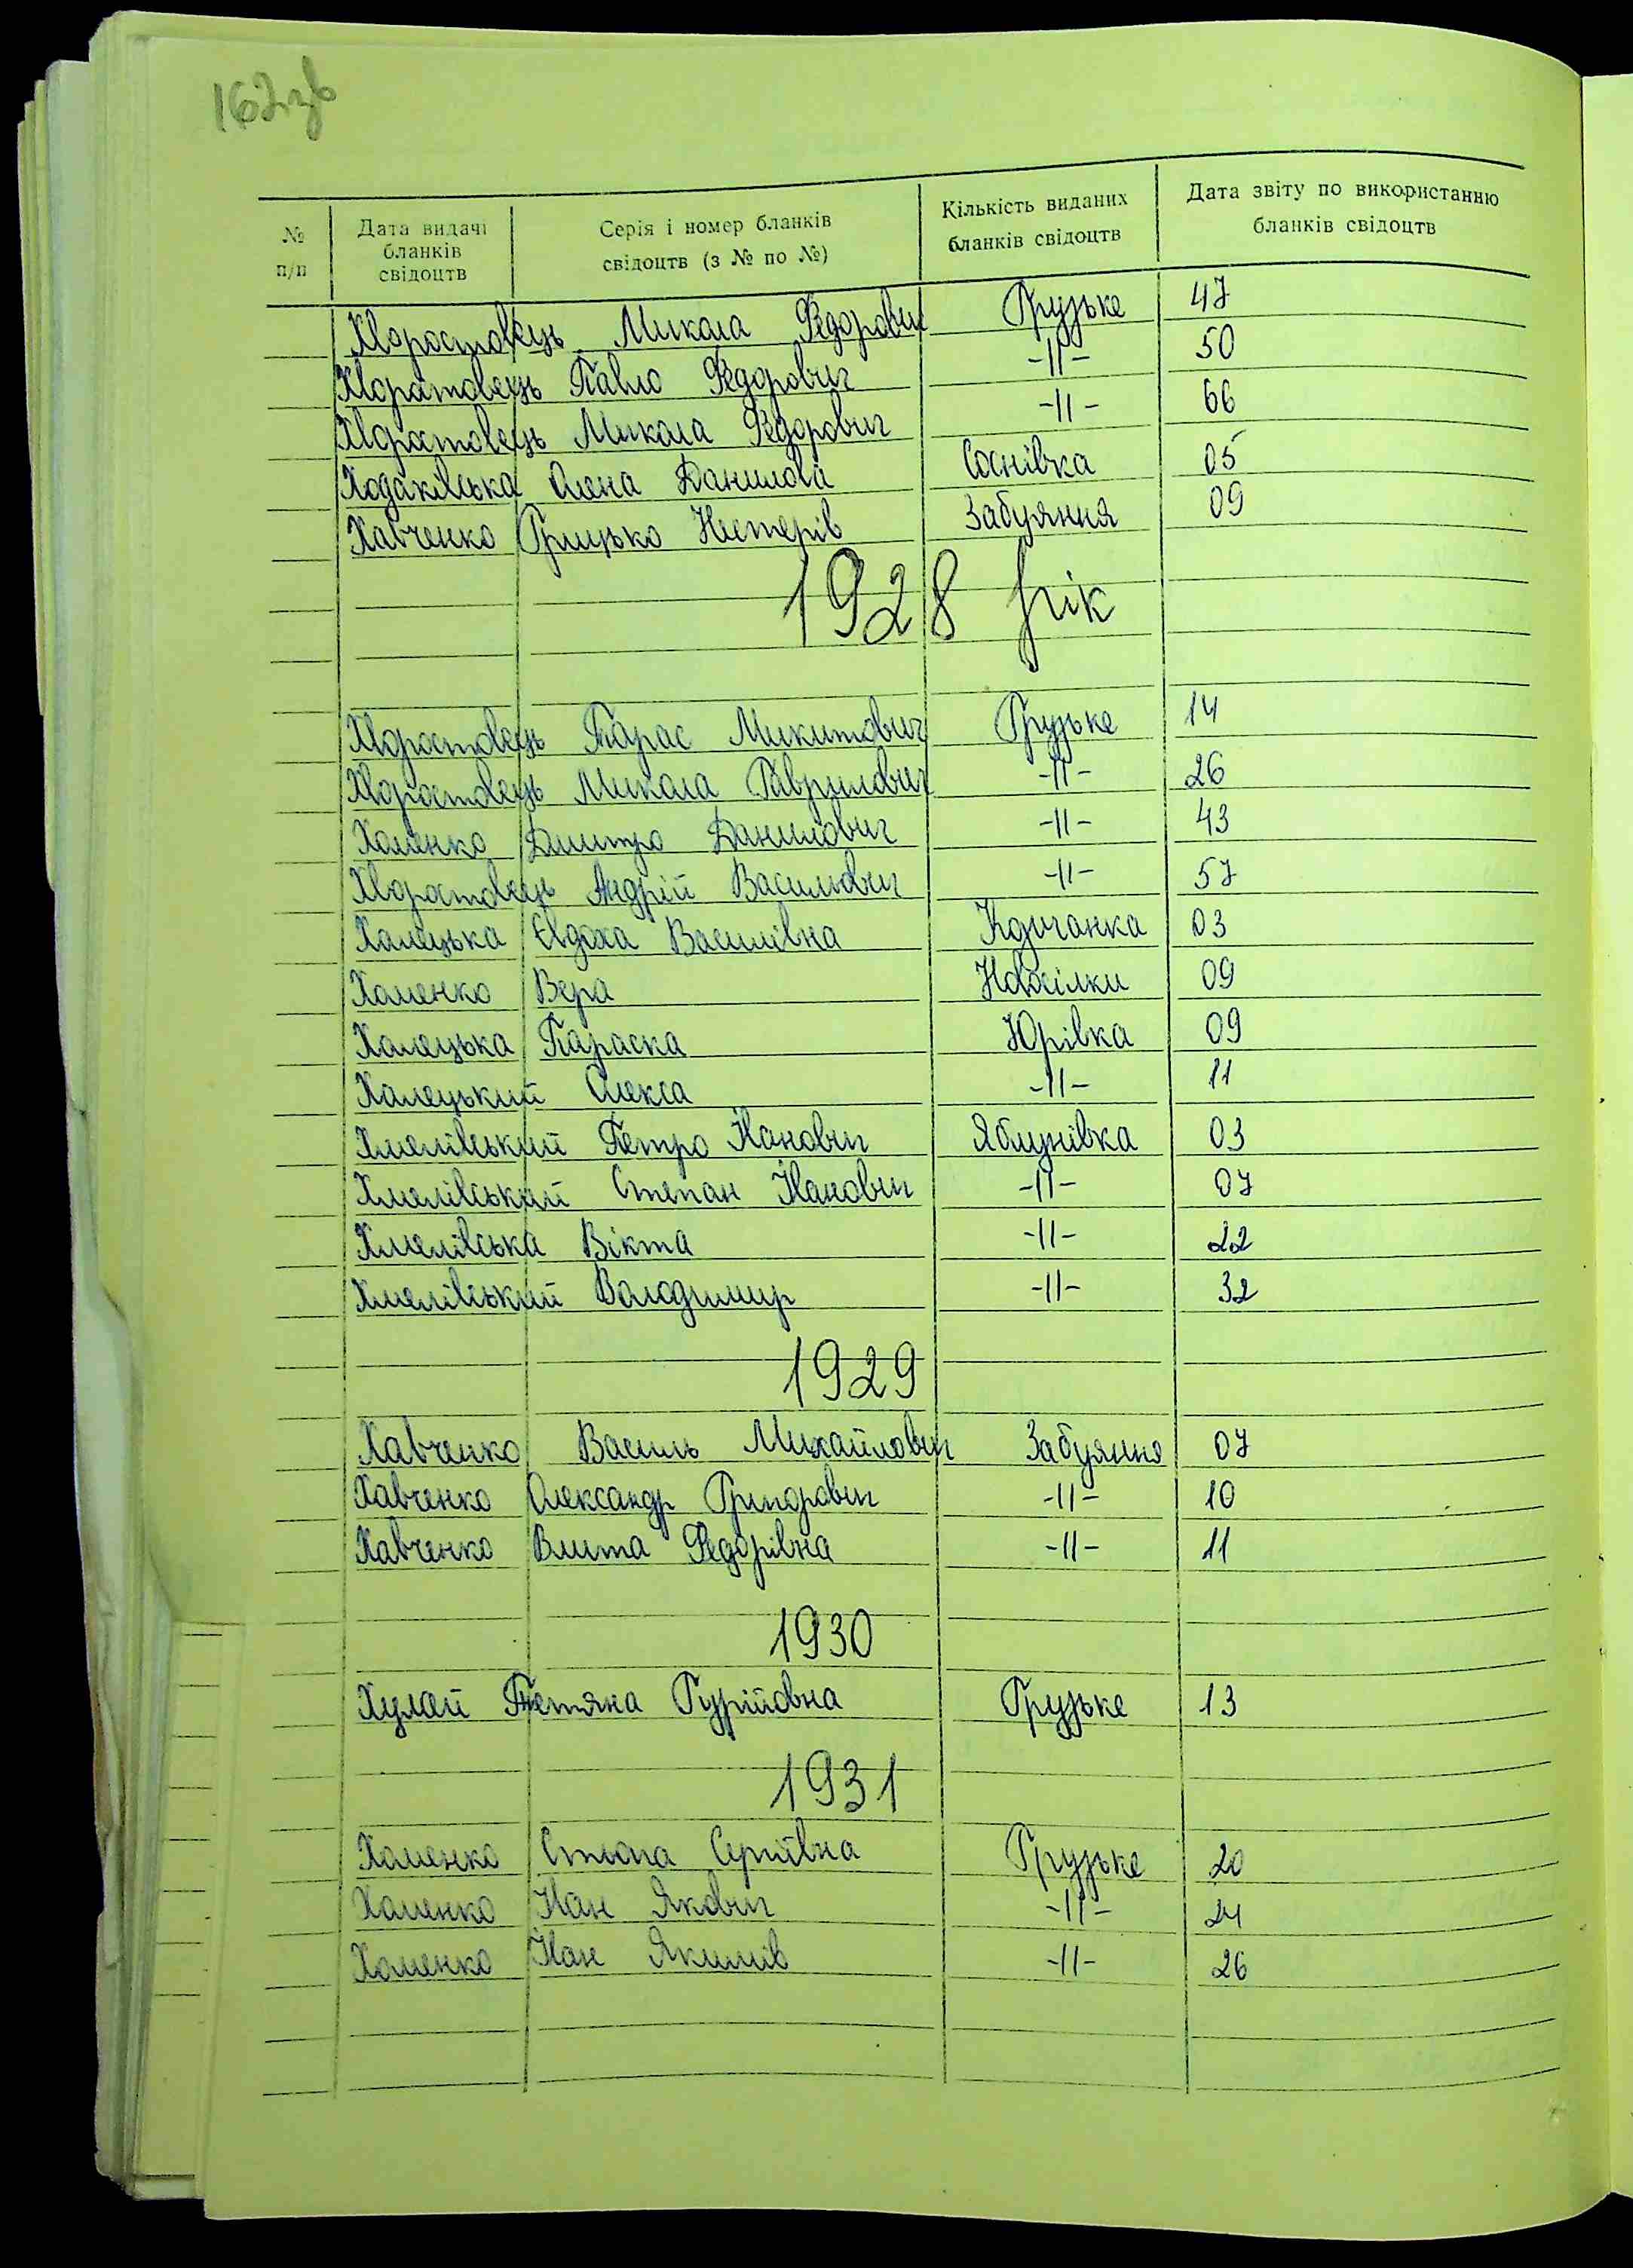 162зв
№ п/п
Дата видачі бланків свідоцтв
Серія і номер бланків свідоцтв (з № по №)
Кількість виданих бланків свідоцтв
Дата звіту по використанню бланків свідоцтв
Хворостовець Микола Федорович Грузьке 47
Хворостовець Павло Федорович -||- 50
Хворостовець Микола Федорович -||- 66
Ходаківська Олена Данилова Соснівка 05
Хавченко Грицько Нестерів Забуяння 09
1928 рік
Хворостовець Тарас Микитович Грузьке 14
Хворостовець Микола Гаврилович -||- 26
Хоменко Дмитро Данилович -||- 43
Хворостовець Андрій Васильович -||- 57
Халецька Євдоха Василівна Кодичанка 03
Хоменко Вера Новосілки 09
Халецька Параска Юрівка 09
Халецький Олекса -||- 11
Хмелівський Петро Іванович Яблунівка 03
Хмелівський Степан Іванович -||- 07
Хмелівська Вікта -||- 22
Хмелівський Володимир -||- 32
1929
Хавченко Василь Михайлович Забуяння 07
Хавченко Олександр Григорович -||- 10
Хавченко Федорівна -||- 11
1930
Хулей Тетяна Гурійовна Грузьке 13
1931
Хоменко Сергіївна Грузьке 20
Хоменко Іван Якович -||- 24
Хоменко Іван Якимів -||- 26